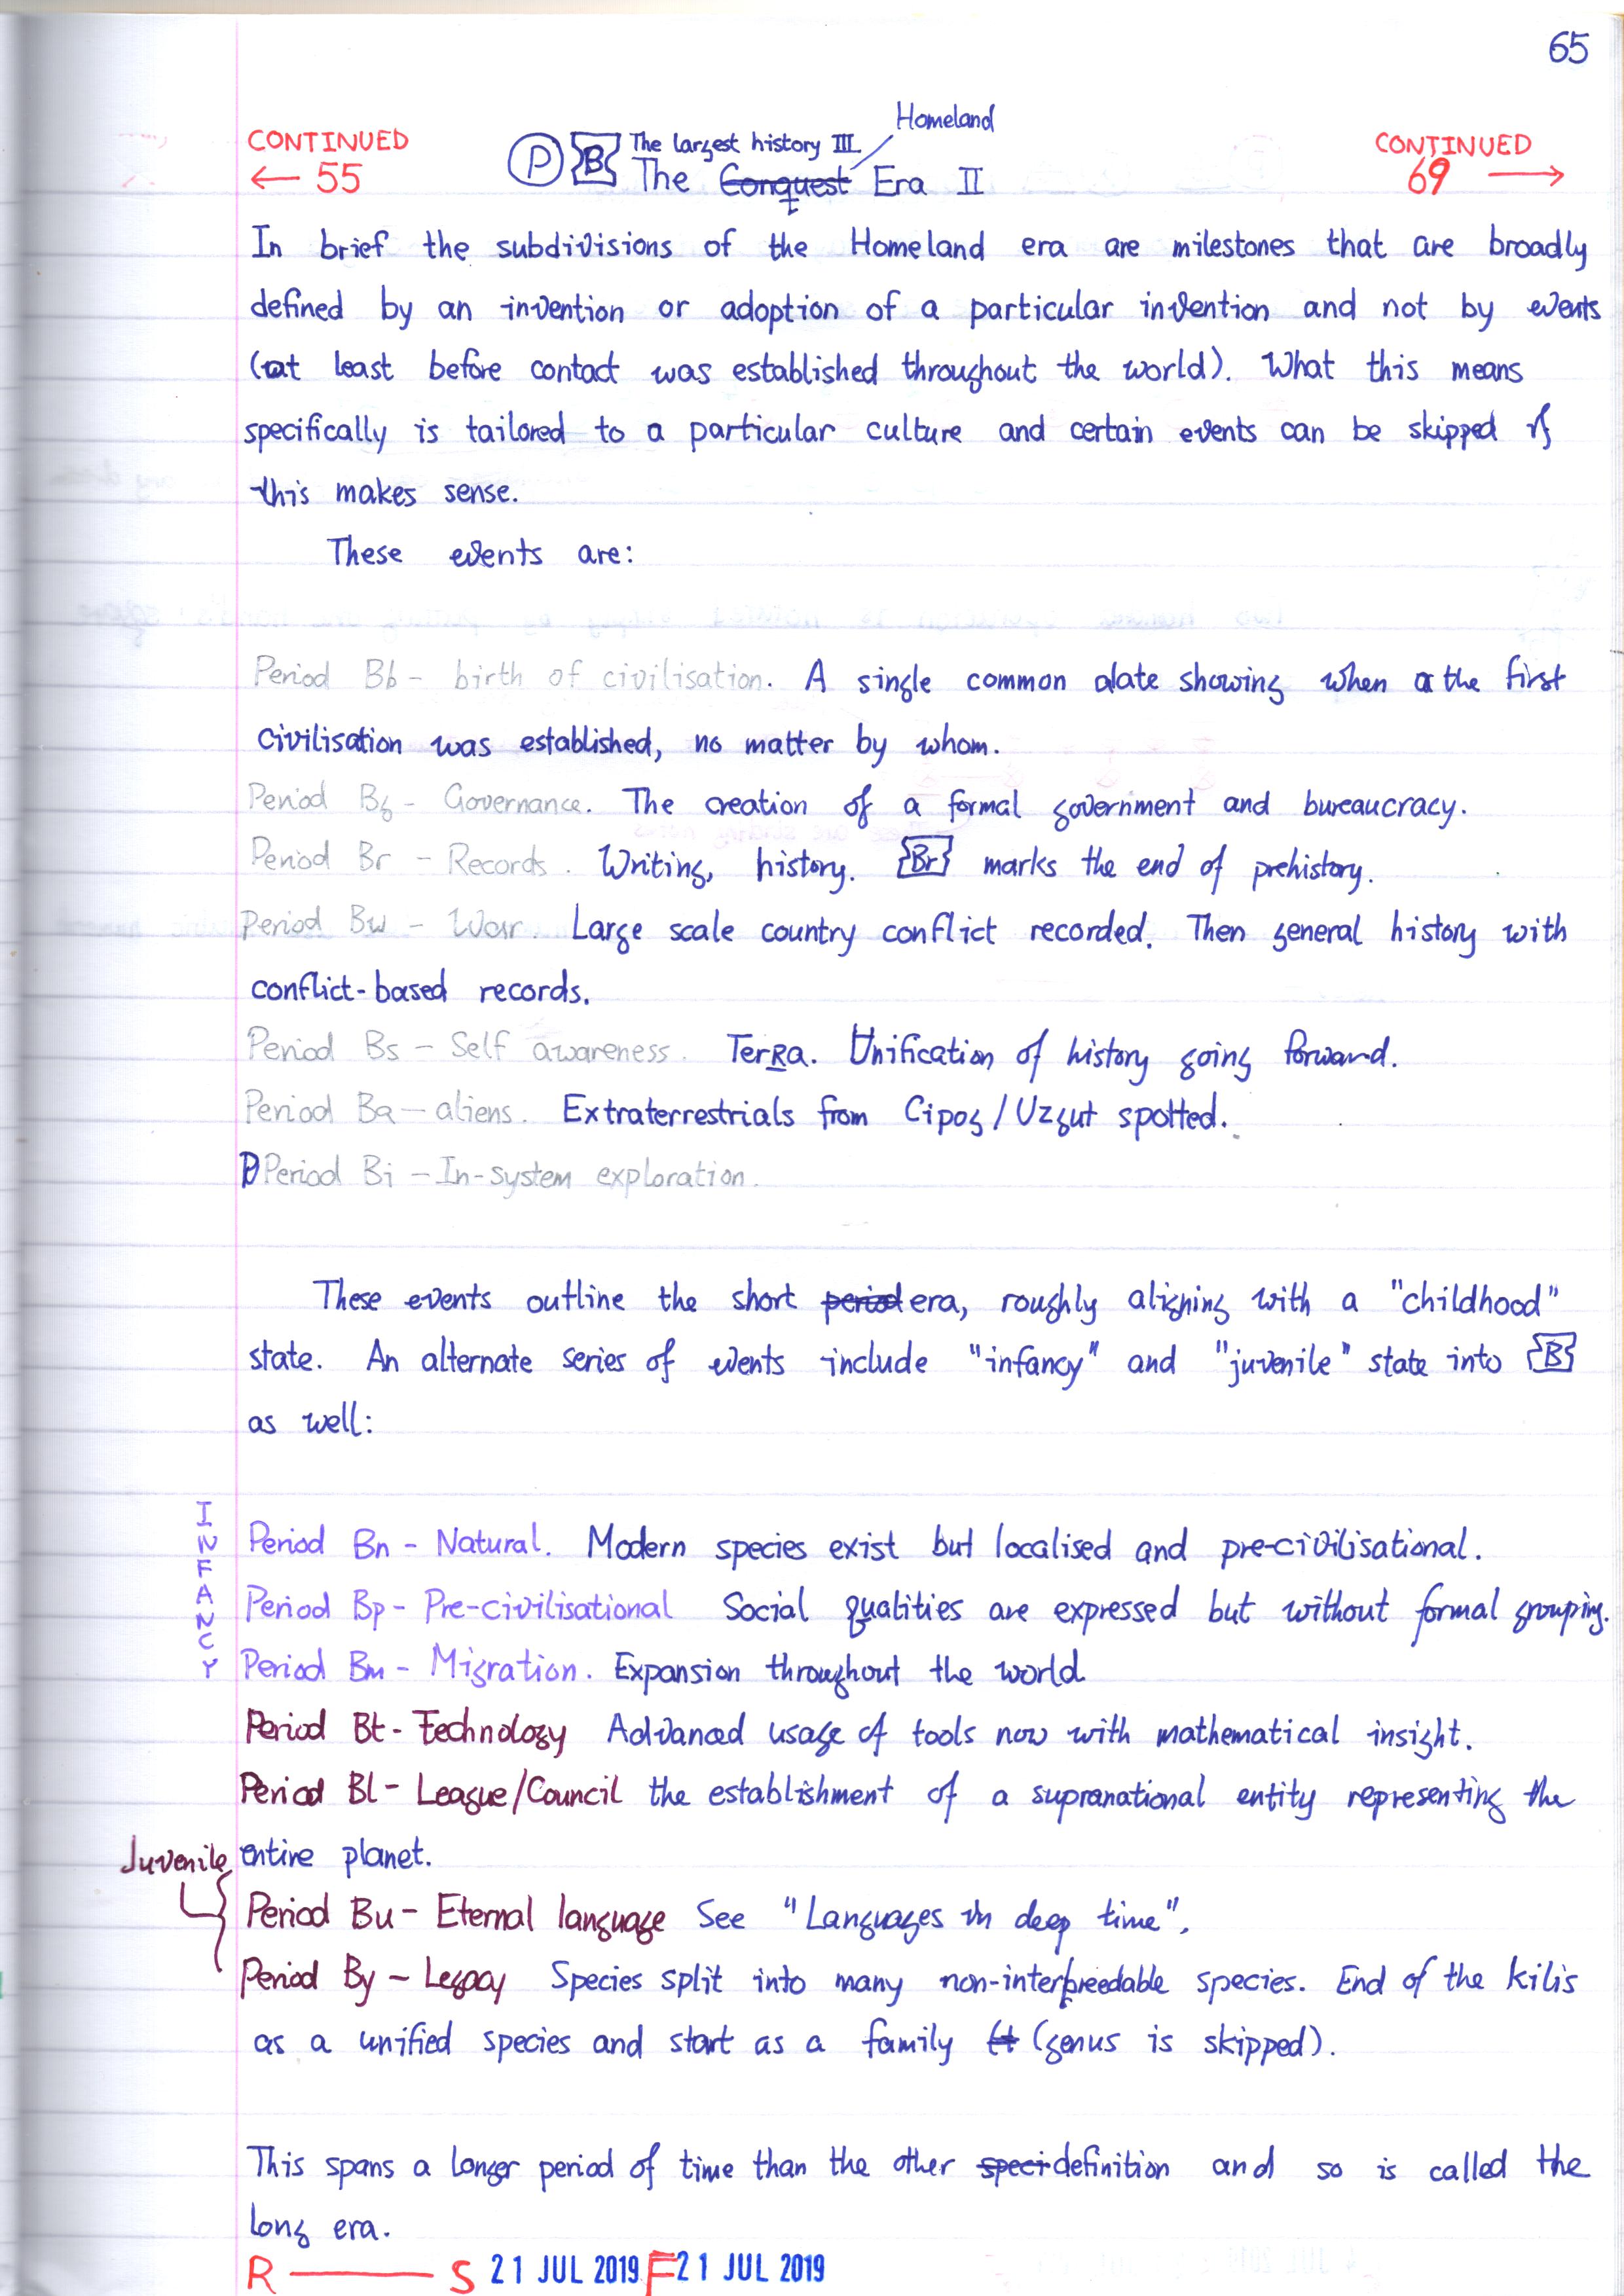 65
CONTINUED
← 55
P B The largest history III
Homeland
The Conquest Era II
CONTINUED
69 →
In brief the subdivisions of the Homeland era are milestones that are broadly
defined by an invention or adoption of a particular invention and not by events
(at least before contact was established throughout the world). What this means
specifically is tailored to a particular culture and certain events can be skipped if
this makes sense.
These events are:
Period Bb - birth of civilisation. A single common date showing when the first
civilisation was established, no matter by whom.
Period Bg - Governance. The creation of a formal government and bureaucracy.
Period Br - Records. Writing, history. {Br} marks the end of prehistory.
Period Bw - War. Large scale country conflict recorded. Then general history with
conflict-based records.
Period Bs - Self awareness. TerRa. Unification of history going forward.
Period Ba - aliens. Extraterrestrials from Cipog/Uzgut spotted.
Period Bi - In-system exploration.
These events outline the short period era, roughly aligning with a "childhood"
state. An alternate series of events include "infancy" and "juvenile" state into {B}
as well:
INFANCY
Period Bn - Natural. Modern species exist but localised and pre-civilisational.
Period Bp - Pre-civilisational Social qualities are expressed but without formal grouping.
Period Bm - Migration. Expansion throughout the world
Period Bt - Technology Advanced usage of tools now with mathematical insight.
Period Bl - League/Council the establishment of a supranational entity representing the
entire planet.
Juvenile
Period Bu - Eternal language See "Languages in deep time".
Period By - Legacy Species split into many non-interbreedable species. End of the kilis
as a unified species and start as a family (genus is skipped).
This spans a longer period of time than the other speci definition and so is called the
long era.
R — S 21 JUL 2019 F 21 JUL 2019